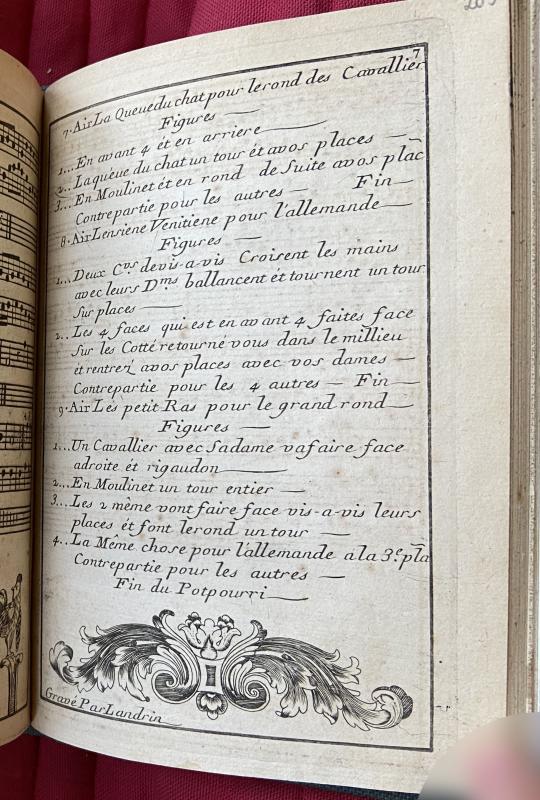 7
7. Air La Queue du chat pour le rond des Cavallier
Figures —
1... En avant 4 ét en arriere —
2... La queue du chat un tour ét avos places —
3... En Moulinet ét en rond de Suite avos plac
Contre partie pour les autres — Fin —
8. Air Lensiene Venitiene pour l'allemande —
Figures —
1... Deux Cvrs devis-a-vis Croisent les mains
avec leurs Dms ballancent ét tournent un tour
Sur places —
2... Les 4 faces qui est en avant 4 faites face
Sur les Cotté retourné vous dans le millieu
ét rentrez avos places avec vos dames —
Contrepartie pour les 4 autres — Fin —
9. Air Lés petit Ras pour le grand rond —
Figures —
1... Un Cavallier avec Sa dame va faire face
adroite et rigaudon —
2... En Moulinet un tour entier —
3... Les 2 même vont faire face vis-a-vis leurs
places ét font le rond un tour —
4... La Même chose pour l'allemande a la 3e. pla
Contrepartie pour les autres —
Fin du Potpourri —
Gravé Par Landrin